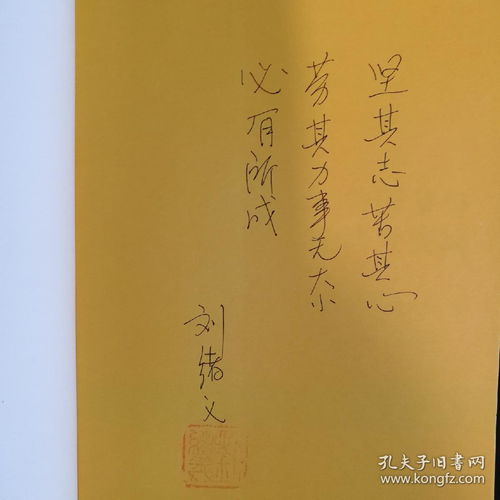 坚其志苦其心
劳其力事无大小
必有所成
刘绪义
孔夫子旧书网
www.kongfz.com